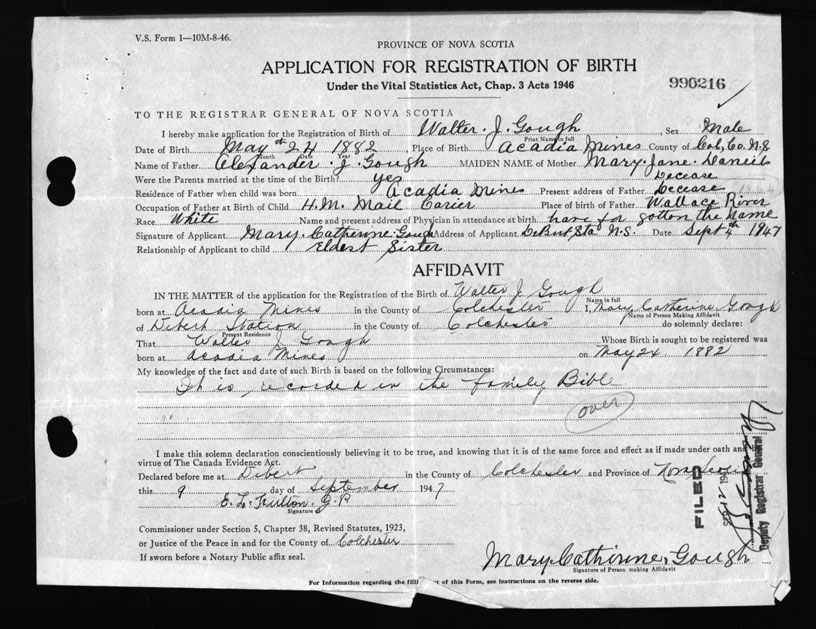 V.S. Form 1—10M-8-46.
PROVINCE OF NOVA SCOTIA
APPLICATION FOR REGISTRATION OF BIRTH
Under the Vital Statistics Act, Chap. 3 Acts 1946
990216
TO THE REGISTRAR GENERAL OF NOVA SCOTIA
I hereby make application for the Registration of Birth of Walter. J. Gough Sex Male
Print Name in full
Date of Birth May 24 1882 Place of Birth Acadia Mines County of Col, Co. N.S
Month Date Year
Name of Father Alexander. J. Gough MAIDEN NAME of Mother Mary. Jane. Daniels
Were the Parents married at the time of the Birth? yes Decease
Residence of Father when child was born Acadia Mines Present address of Father Decease
Occupation of Father at Birth of Child H.M. Mail Carier Place of birth of Father Wallace River
Race White Name and present address of Physician in attendance at birth have for gotten the Name
Signature of Applicant Mary. Catherine. Gough Address of Applicant DeBert, Sta N.S. Date Sept 4th 1947
Relationship of Applicant to child Eldest Sister
AFFIDAVIT
IN THE MATTER of the application for the Registration of the Birth of Walter J. Gough
Name in full
born at Acadia Mines in the County of Colchester I, Mary Catherine Gough
Name of Person Making Affidavit
of Debert Station in the County of Colchester do solemnly declare:
Present Residence
That Walter J. Gough Whose Birth is sought to be registered was
born at Acadia Mines on May 24 1882
My knowledge of the fact and date of such Birth is based on the following Circumstances:
It is recorded in the family Bible
over
I make this solemn declaration conscientiously believing it to be true, and knowing that it is of the same force and effect as if made under oath and
virtue of The Canada Evidence Act.
Declared before me at Debert in the County of Colchester and Province of Nova Scotia
this 9 day of September 1947
E. L. Fulton. J.P.
Signature
Commissioner under Section 5, Chapter 38, Revised Statutes, 1923,
or Justice of the Peace in and for the County of Colchester
If sworn before a Notary Public affix seal.
Mary Catherine, Gough
Signature of Person making Affidavit
For Information regarding the of this Form, see instructions on the reverse side.
FILED
SEP 12 194
Deputy Registrar General